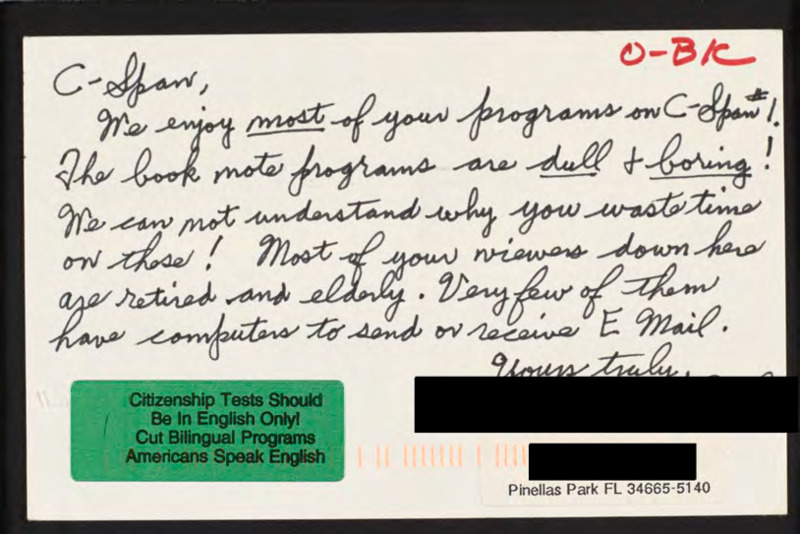 O-BK
C-Span,
We enjoy most of your programs on C-Span #1.
The book note programs are dull & boring!
We can not understand why you waste time
on these! Most of your viewers down here
are retired and elderly. Very few of them
have computers to send or receive E Mail.
Yours truly,
Citizenship Tests Should
Be In English Only!
Cut Bilingual Programs
Americans Speak English
Pinellas Park FL 34665-5140